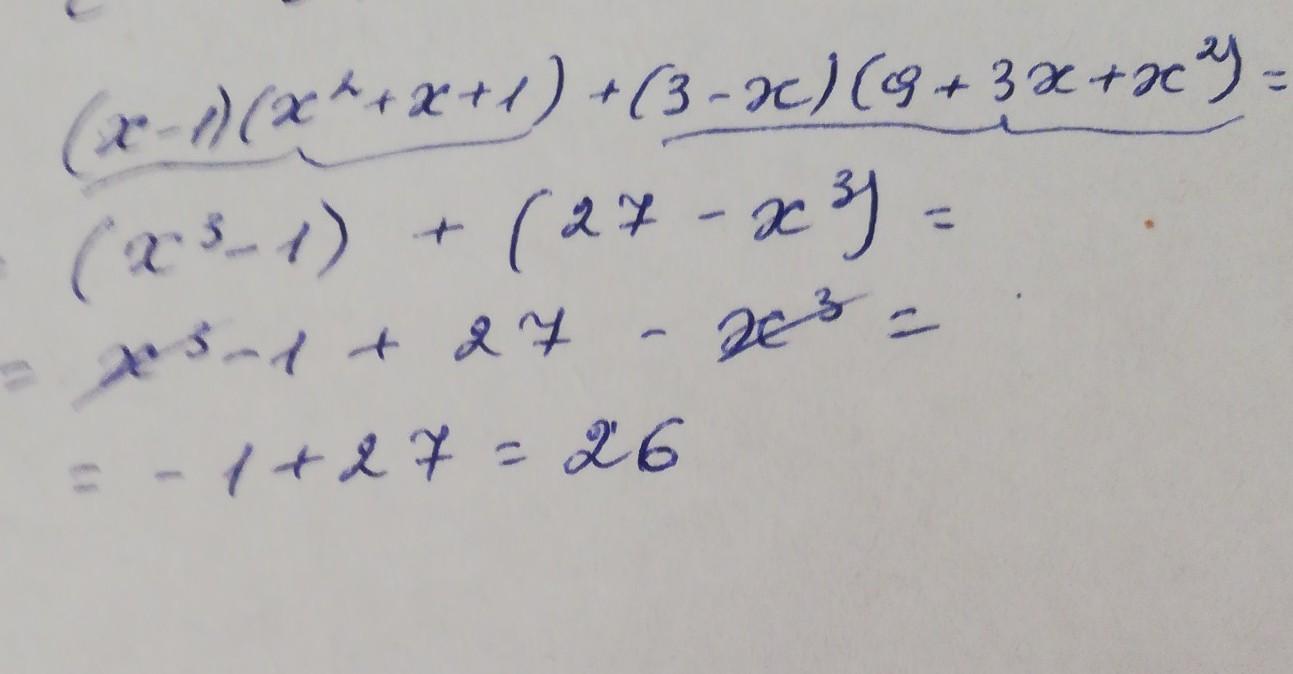 (x-1)(x²+x+1)+(3-x)(9+3x+x²)=
(x³-1) + (27-x³) =
= x³-1 + 27 - x³ =
= -1+27 = 26